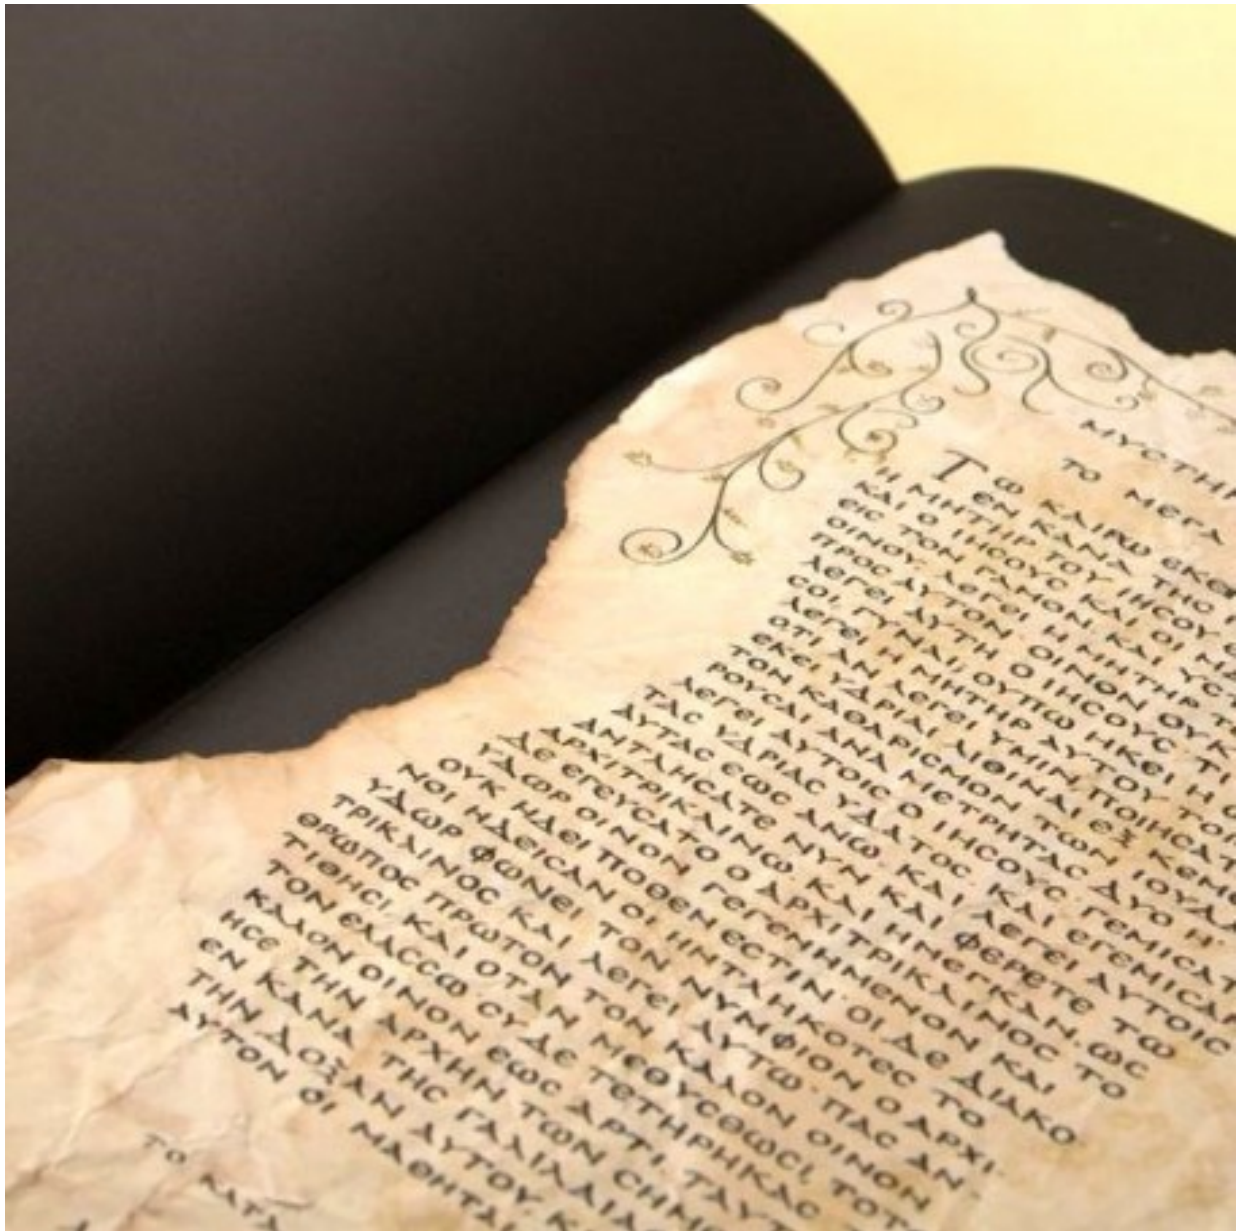 ΜΥCΤΗΡ
ΤΟ ΜΕΓΑ
ΤΩ ΚΑΙΡΩ ΕΚΕΙ
ΕΝ ΚΑΝΑ ΤΗC
Η ΜΗΤΗΡ ΤΟΥ ΙΗCΟΥ
ΚΑΙ Ο ΙΗCΟΥC ΚΑΙ ΟΙ ΜΑ
ΕΙC ΤΟΝ ΓΑΜΟΝ ΚΑΙ ΥCΤ
ΟΙΝΟΥ, ΛΕΓΕΙ Η ΜΗΤΗΡ Τ
ΠΡΟC ΑΥΤΟΝ· ΟΙΝΟΝ ΟΥΚ
ΛΕΓΕΙ ΑΥΤΗ Ο ΙΗCΟΥC ΤΙ
CΟΙ, ΓΥΝΑΙ; ΟΥΠΩ ΗΚΕΙ Η
ΛΕΓΕΙ Η ΜΗΤΗΡ ΑΥΤΟΥ ΤΟΙC
ΟΤΙ ΑΝ ΛΕΓΕΙ ΥΜΙΝ, ΠΟΙΗCΑΤ
ΕΚΕΙ ΥΔΡΙΑΙ ΛΙΘΙΝΑΙ ΕΞ ΚΕΙΜΕ
ΤΟΝ ΚΑΘΑΡΙCΜΟΝ ΤΩΝ ΙΟΥΔΑ
ΡΟΥCΑΙ ΑΝΑ ΜΕΤΡΗΤΑC ΔΥΟ Η
ΛΕΓΕΙ ΑΥΤΟΙC Ο ΙΗCΟΥC· ΓΕΜΙCΑΤ
ΤΑC ΥΔΡΙΑC ΥΔΑΤΟC. ΚΑΙ ΕΓΕΜΙCΑΝ
ΑΥΤΑC ΕΩC ΑΝΩ ΚΑΙ ΛΕΓΕΙ ΑΥΤΟΙC
ΑΝΤΛΗCΑΤΕ ΝΥΝ ΚΑΙ ΦΕΡΕΤΕ ΤΩ
ΑΡΧΙΤΡΙΚΛΙΝΩ ΚΑΙ ΗΝΕΓΚΑΝ. ΩC
ΔΕ ΕΓΕΥCΑΤΟ Ο ΑΡΧΙΤΡΙΚΛΙΝΟC ΤΟ
ΥΔΩΡ ΟΙΝΟΝ ΓΕΓΕΝΗΜΕΝΟΝ ΚΑΙ
ΟΥΚ ΗΔΕΙ ΠΟΘΕΝ ΕCΤΙΝ· ΟΙ ΔΕ ΔΙΑΚΟ
ΝΟΙ ΗΔΕΙCΑΝ ΟΙ ΗΝΤΛΗΚΟΤΕC ΤΟ
ΥΔΩΡ ΦΩΝΕΙ ΤΟΝ ΝΥΜΦΙΟΝ Ο ΑΡΧΙ·
ΤΡΙΚΛΙΝΟC ΚΑΙ ΛΕΓΕΙ ΑΥΤΩ· ΠΑC ΑΝ·
ΘΡΩΠΟC ΠΡΩΤΟΝ ΤΟΝ ΚΑΛΟΝ ΟΙΝΟΝ
ΤΙΘΗCΙ, ΚΑΙ ΟΤΑΝ ΜΕΘΥCΘΩCΙ, ΤΟΤΕ
ΤΟΝ ΕΛΑCCΩ CΥ ΔΕ ΤΕΤΗΡΗΚΑC Τ
ΚΑΛΟΝ ΟΙΝΟΝ ΕΩC ΑΡΤΙ. ΤΑΥΤ
ΗCΕ ΤΗΝ ΑΡΧΗΝ ΤΩΝ CΗΜΕ
ΕΝ ΚΑΝΑ ΤΗC ΓΑΛΙΛΑΙΑC
ΤΗΝ ΔΟΞΑΝ ΑΥΤΟΥ, Κ
ΑΥΤΟΝ ΟΙ ΜΑΘΗΤΑΙ
ΤΟ ΚΑΤΑ